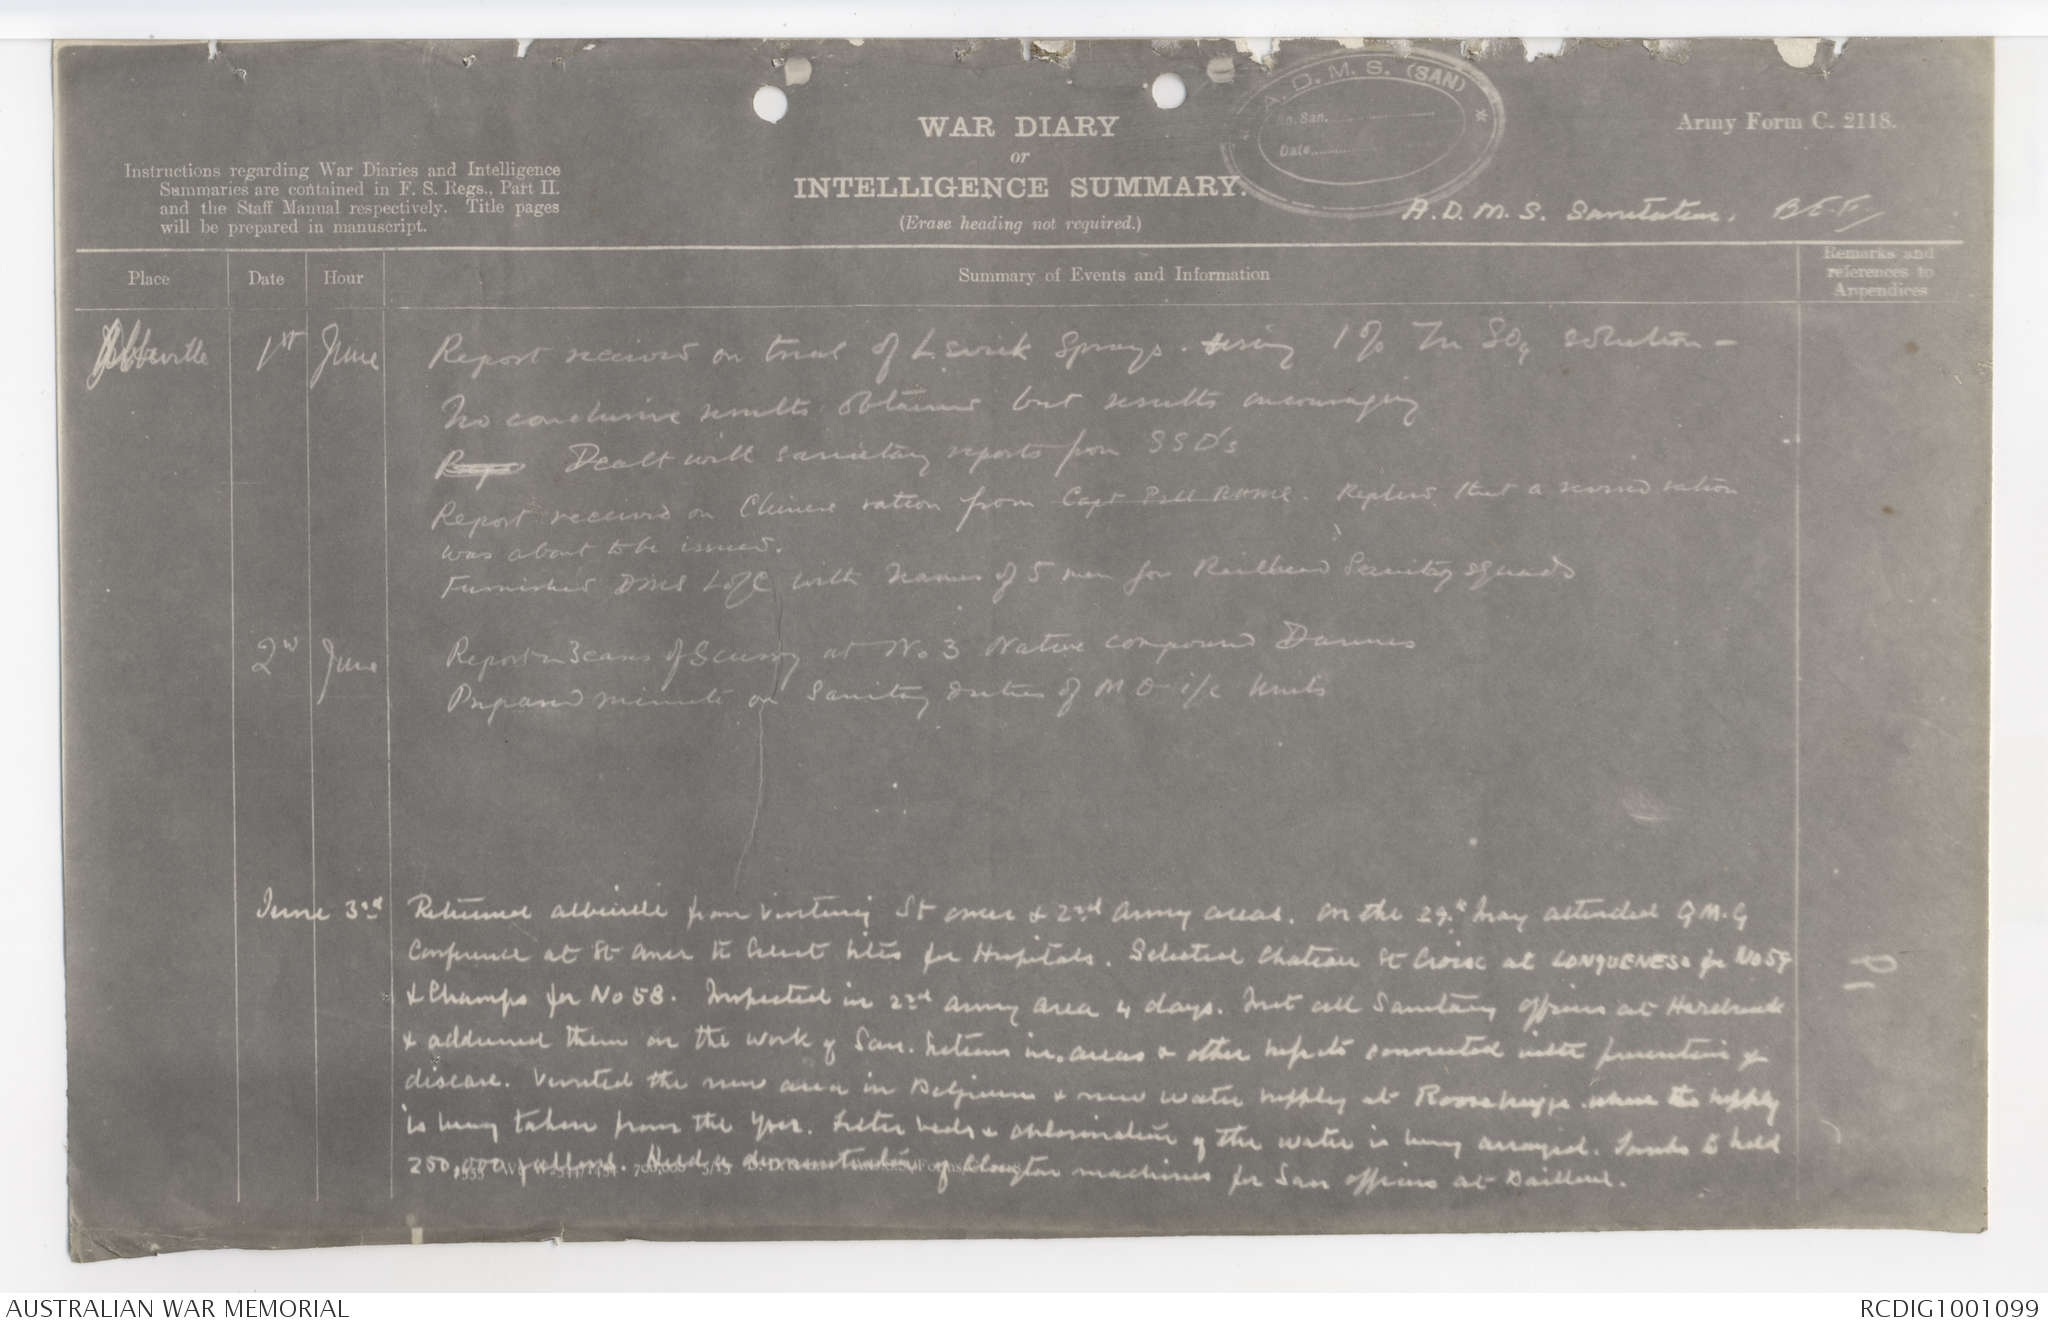 A.D.M.S. (SAN)
No. San.
Date
Army Form C. 2118.
WAR DIARY
or
INTELLIGENCE SUMMARY.
(Erase heading not required.)
Instructions regarding War Diaries and Intelligence
Summaries are contained in F. S. Regs., Part II.
and the Staff Manual respectively. Title pages
will be prepared in manuscript.
A.D.M.S. Sanitation. B.E.F.
Place Date Hour Summary of Events and Information Remarks and
references to
Appendices
Abbeville 1st June Report received on trial of Sprays. using 1% Zn SO4 solution -
No conclusive results obtained but results encouraging
Dealt with sanitary reports from SSD's
Report received on Chinese ration from Capt RAMC. Replied that a revised ration
was about to be issued.
Furnished DMS L of C with names of 5 men for Railhead Sanitary squads
2nd June Report on 3 cases of Scurvy at No 3 Native compound Dannes
Prepared minute on Sanitary duties of M O i/c Units
June 3rd Returned abbeville from visiting St omer & 2nd army areas. On the 29th May attended Q.M.G
Conference at St Omer to select sites for Hospitals. Selected Chateau St Croix at LONGUENESS for No 59
& Champs for No 58. Inspected in 2nd army area 4 days. Met all Sanitary officers at Hazebrouck
& addressed them on the work of San. Sections in areas & other subjects connected with prevention of
disease. Visited the new area in Belgium & new water supply at where the supply
is being taken from the Yser. Filter beds & chlorination of the water is being arranged. Tanks to hold
250,000 gallons. Held a demonstration of machines for San officers at Bailleul.
AUSTRALIAN WAR MEMORIAL
RCDIG1001099